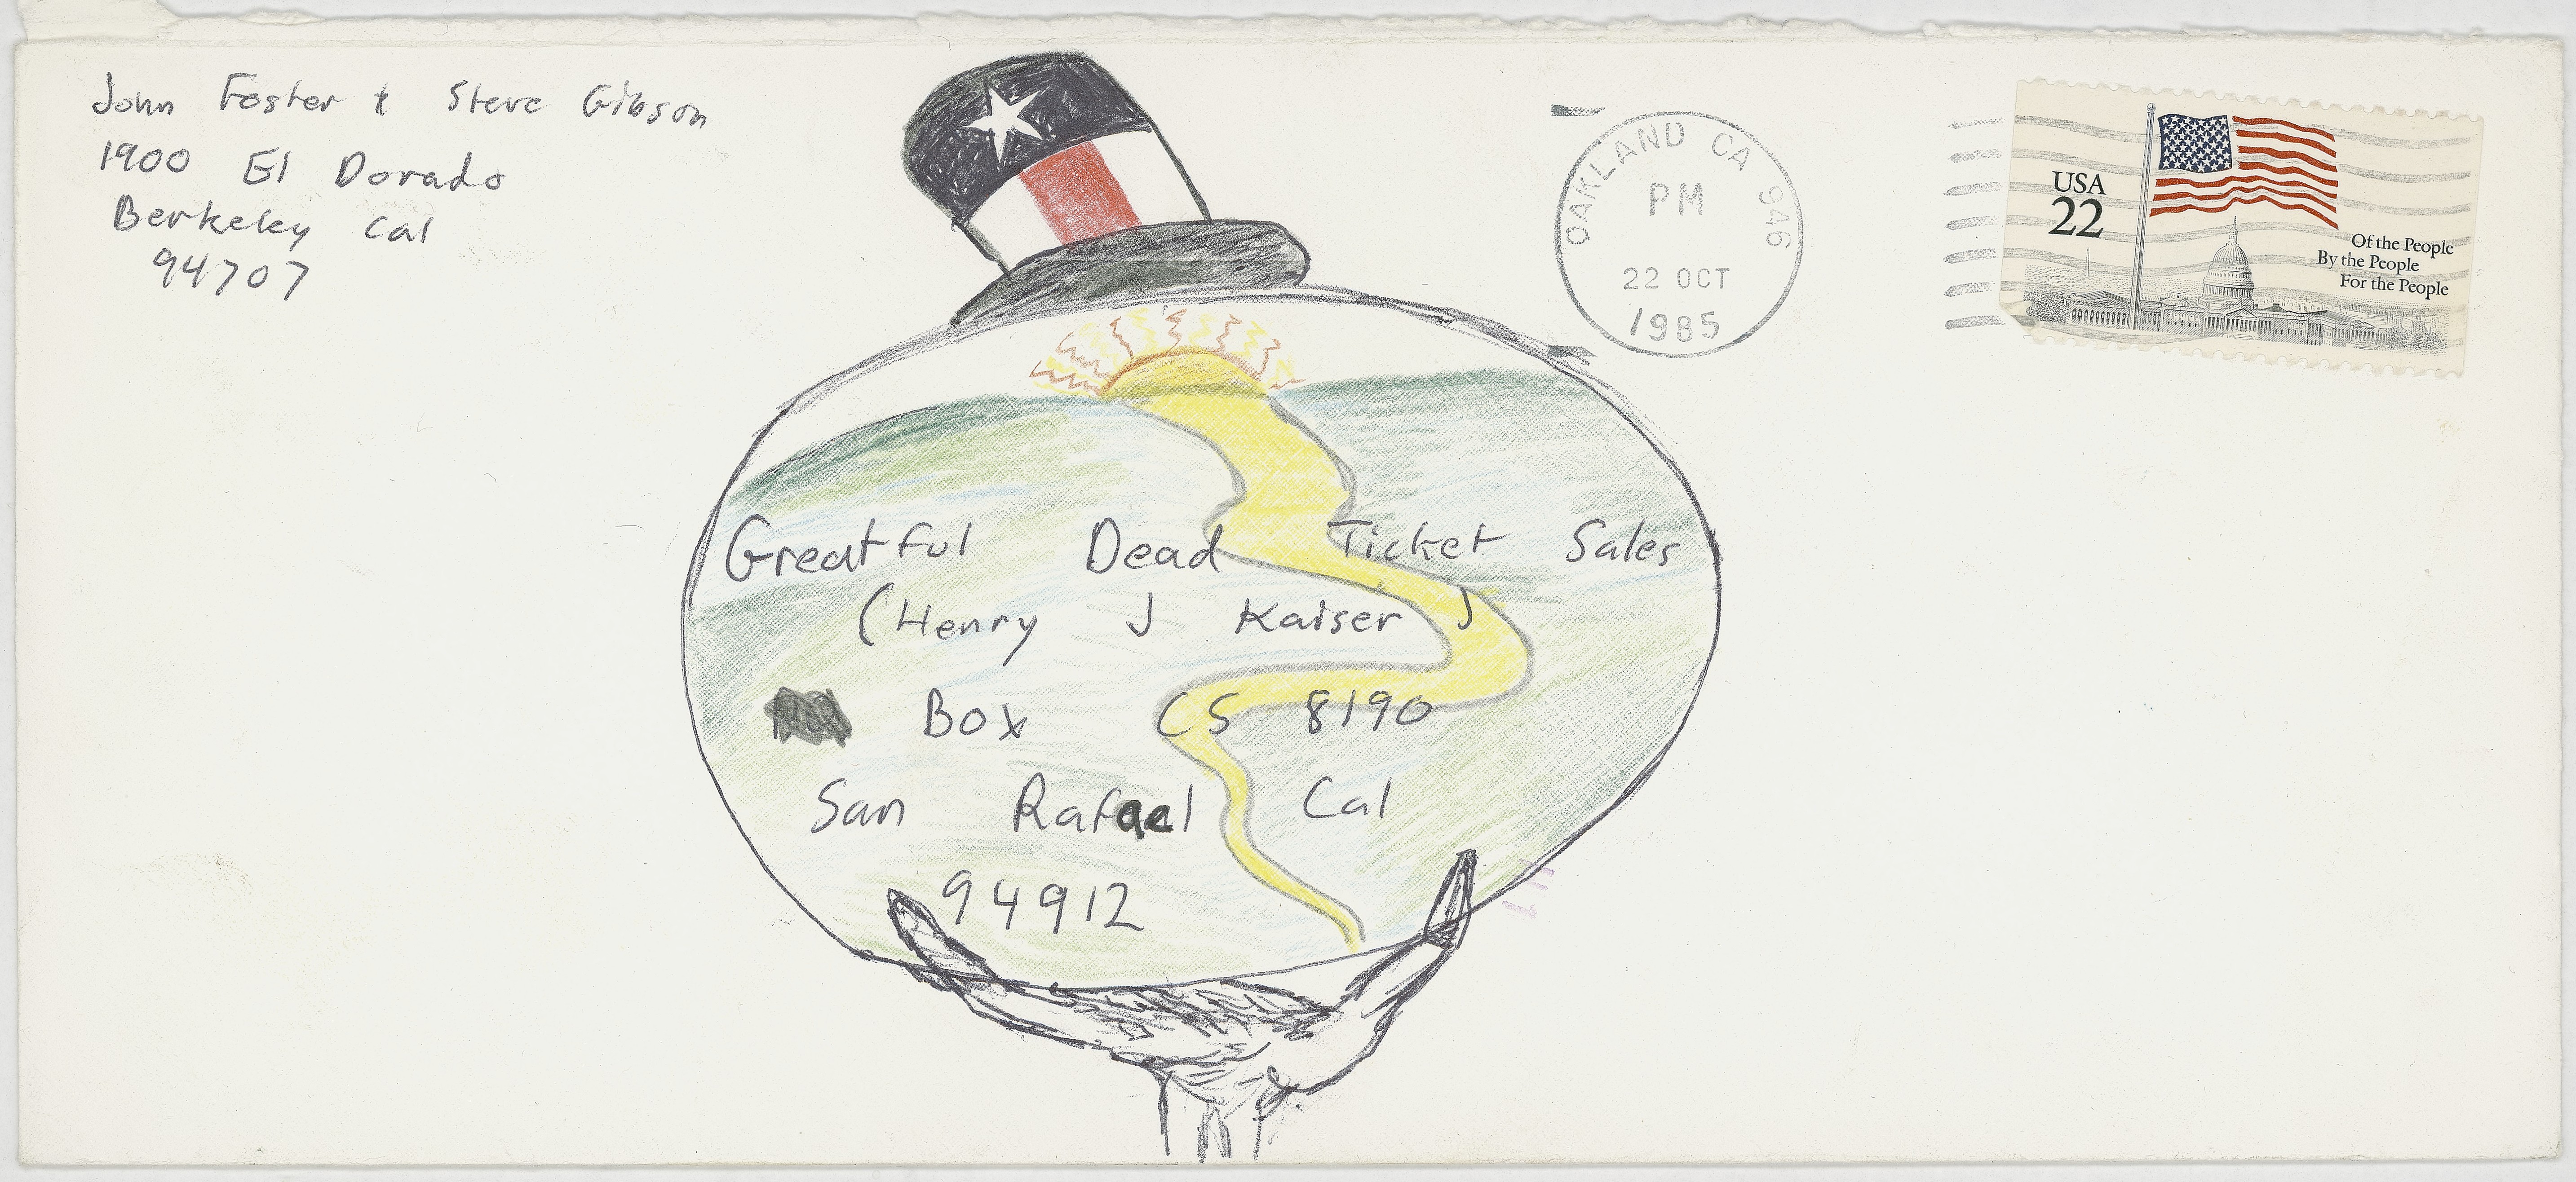 John Foster & Steve Gibson
1900 El Dorado
Berkeley Cal
94707
OAKLAND CA 946
PM
22 OCT
1985
USA
22
Of the People
By the People
For the People
Greatful Dead Ticket Sales
(Henry J Kaiser)
Box CS 8190
San Rafael Cal
94912